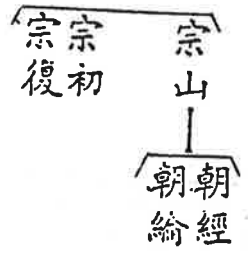 宗山
宗初
宗復
朝經
朝綸